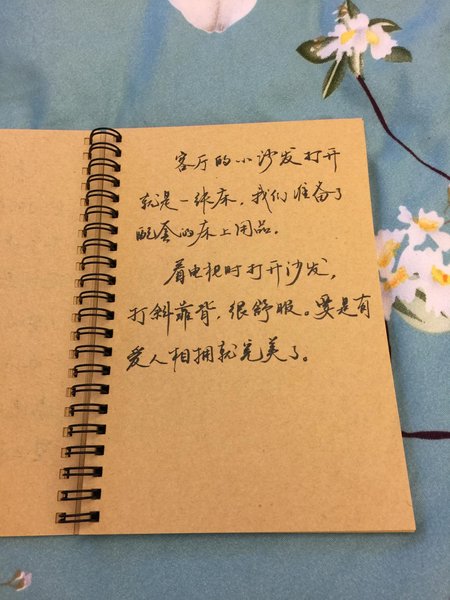 客厅的小沙发打开
就是一张床，我们准备了
配套的床上用品。
看电视时打开沙发，
打斜靠背，很舒服。要是有
爱人相拥就完美了。